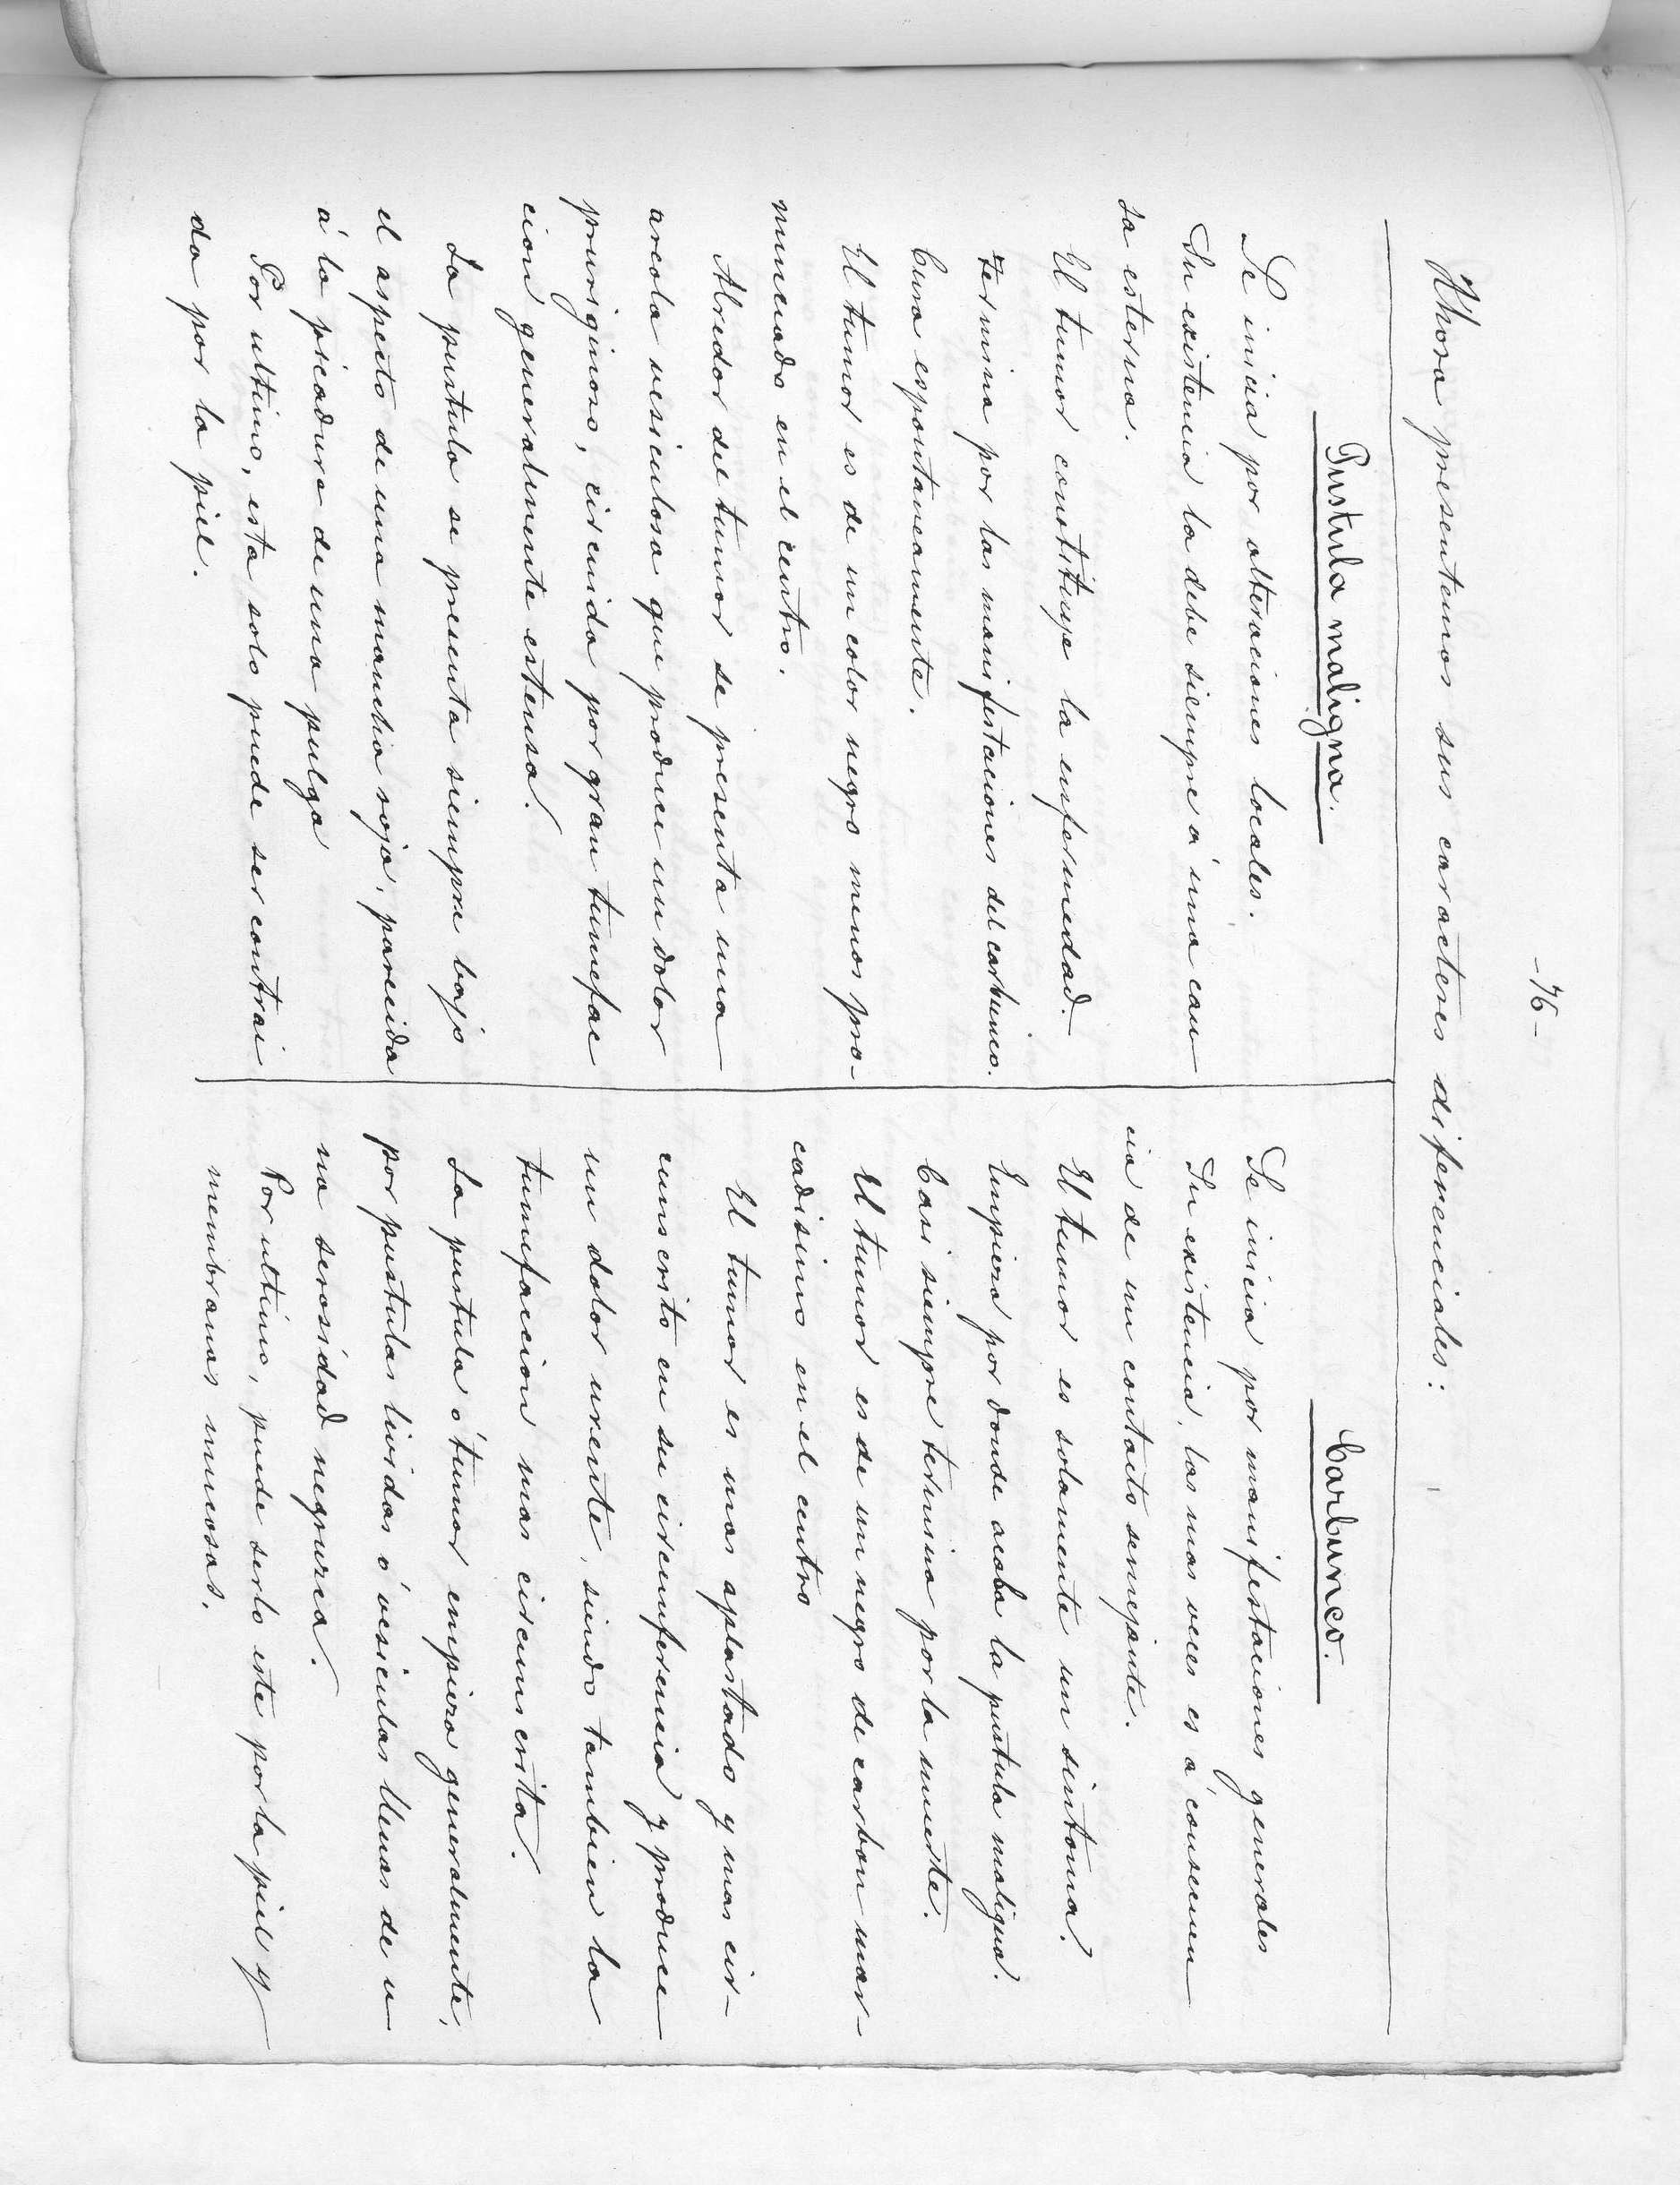 -76-
Ahora presentemos sus caracteres diferenciales:
Pustula maligna.
Se inicia por alteraciones locales.
Su existencia la debe siempre á una cau
sa esterna.
El tumor constituye la enfermedad.
Termina por las manifestaciones del carbunco.
Cura espontaneamente.
El tumor es de un color negro menos pro-
nunciado en el centro.
Alredor del tumor se presenta una
areola vesiculosa que produce un dolor
pruriginoso, circuida por gran tumefac
cion generalmente estensa.
La pustula se presenta siempre bajo
el aspecto de una mancha roja, parecida
á la picadura de una pulga
Por ultimo, esta solo puede ser contrai
da por la piel.
Carbunco.
Se inicia por manifestaciones generales
Su existencia, las mas veces es á consecuen
cia de un contacto semejante.
El tumor es solamente un sintoma.
Empieza por donde acaba la pustula maligna.
Casi siempre termina por la muerte.
El tumor es de un negro de carbon mar-
cadisimo en el centro
El tumor es mas aplastado y mas cir-
cunscrito en su circunferencia y produce
un dolor urente, siendo tambien la
tumefaccion mas circunscrita.
La pustula ó tumor empieza generalmente,
por pustulas lividas ó vesiculas llenas de u
na serosidad negruzca.
Por ultimo, puede serlo este por la piel y
membranas mucosas.